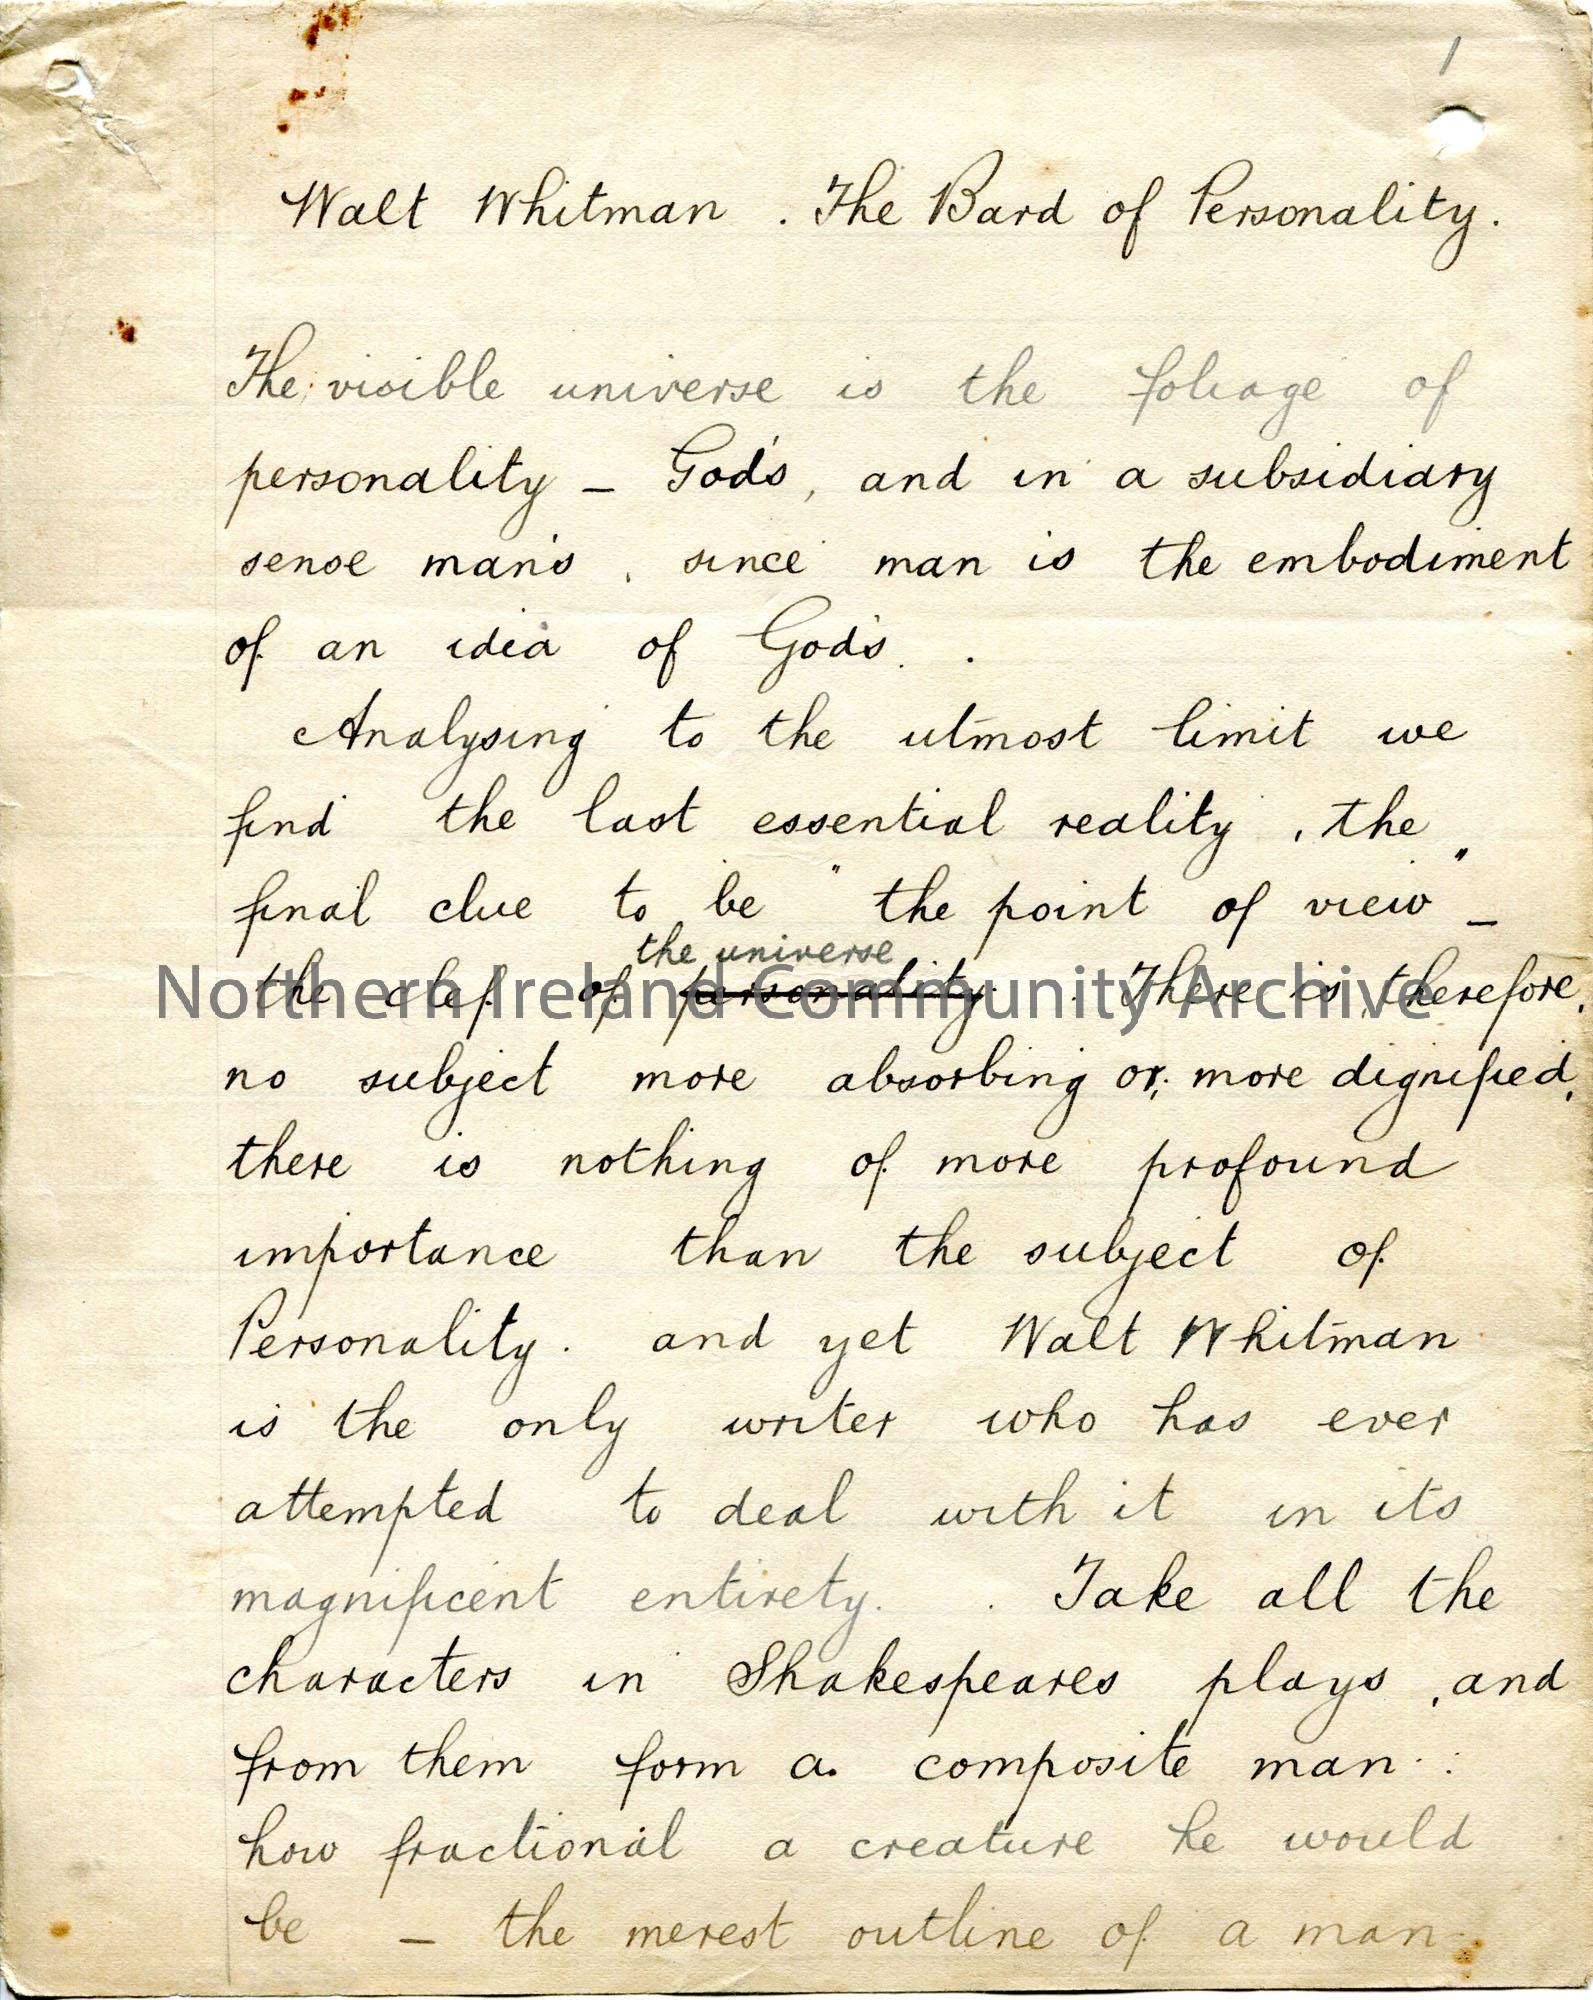 1
Walt Whitman . The Bard of Personality.
The visible universe is the foliage of
personality – God's, and in a subsidiary
sense man's, since man is the embodiment
of an idea of God's. .
Analysing to the utmost limit we
find the last essential reality, the
final clue to be "the point of view" –
the universe
the clef of personality. There is, therefore,
no subject more absorbing or more dignified,
there is nothing of more profound
importance than the subject of
Personality. and yet Walt Whitman
is the only writer who has ever
attempted to deal with it in its
magnificent entirety. . Take all the
characters in Shakespeares plays, and
from them form a composite man :
how fractional a creature he would
be – the merest outline of a man.
Northern Ireland Community Archive